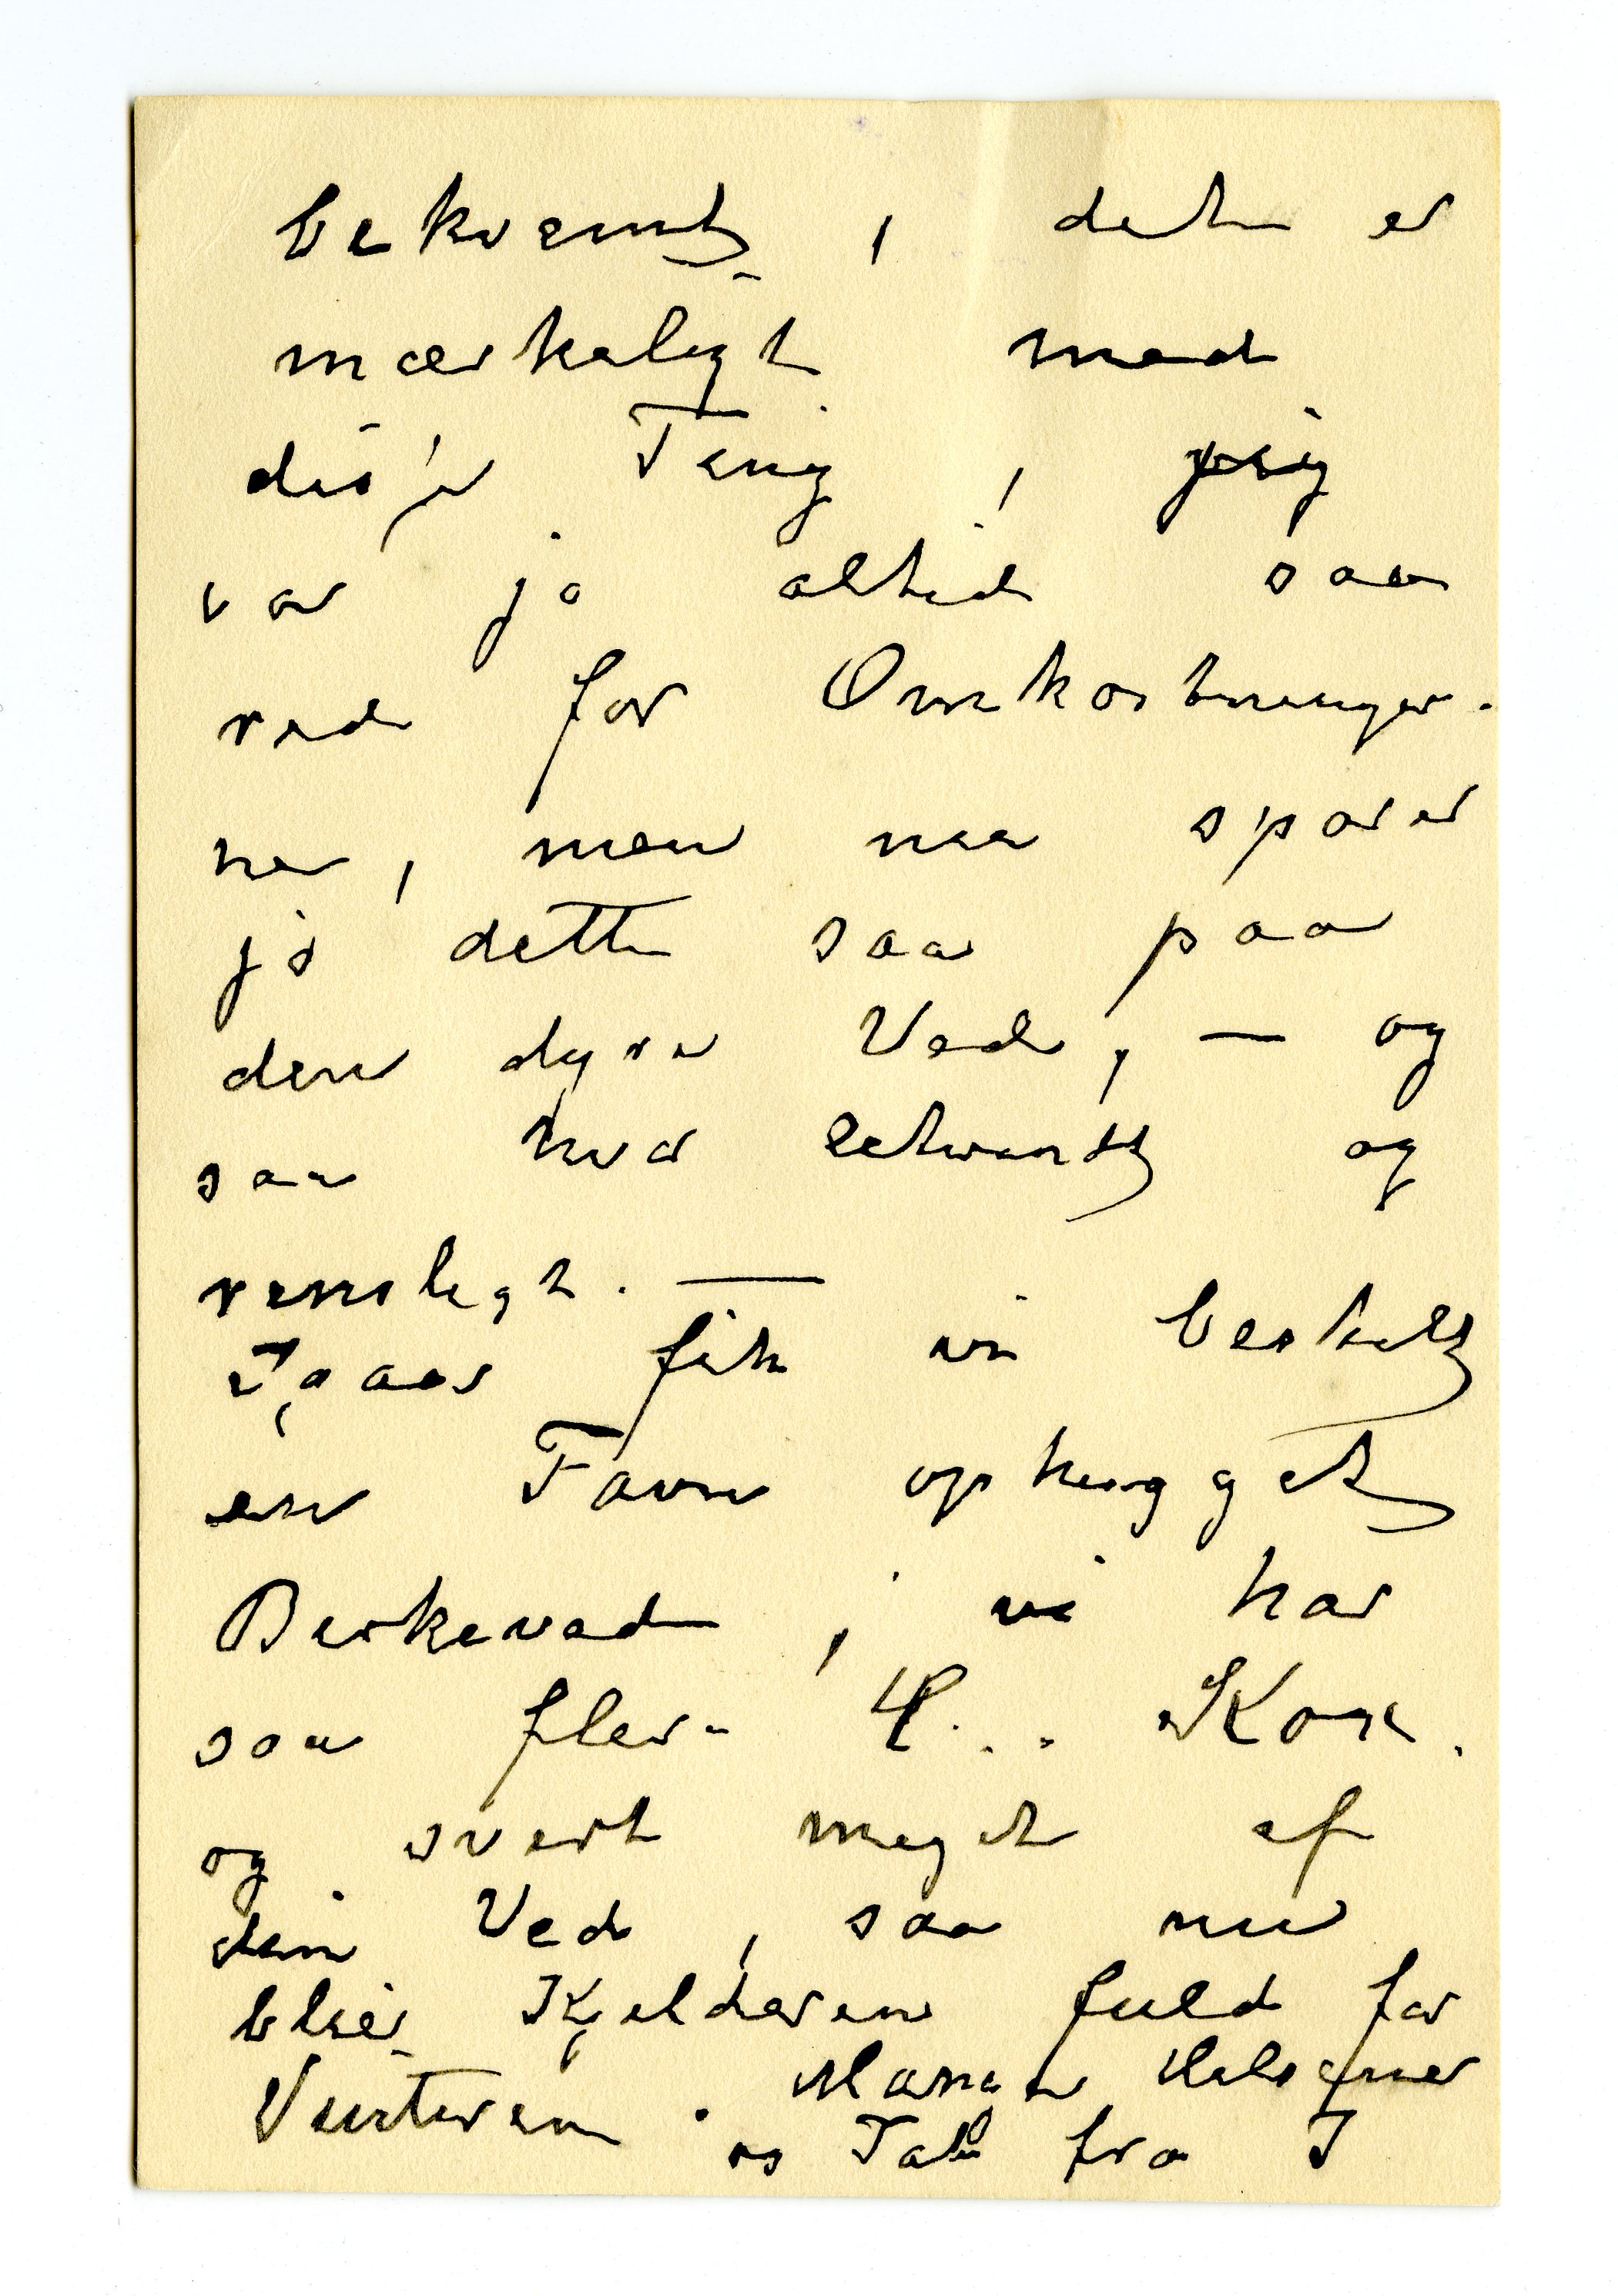 bekvemt, det er
mærkeligt med
disse Ting, jeg
var ja altid saa
red for Omkostninger-
ne, men naa sparer
jo dette saa paa
den dyre Ved, — og
saa hvor letvindt og
renslegt. —
Igaar fik vi bestilt
en Favn ophugget
Birkeved, vi har
saa flere H.. Kok.
og svert meget af
den Ved, saa nu
blir Kjelderen fuld for
Vinteren. Mange Hilsener
og Tak fra I